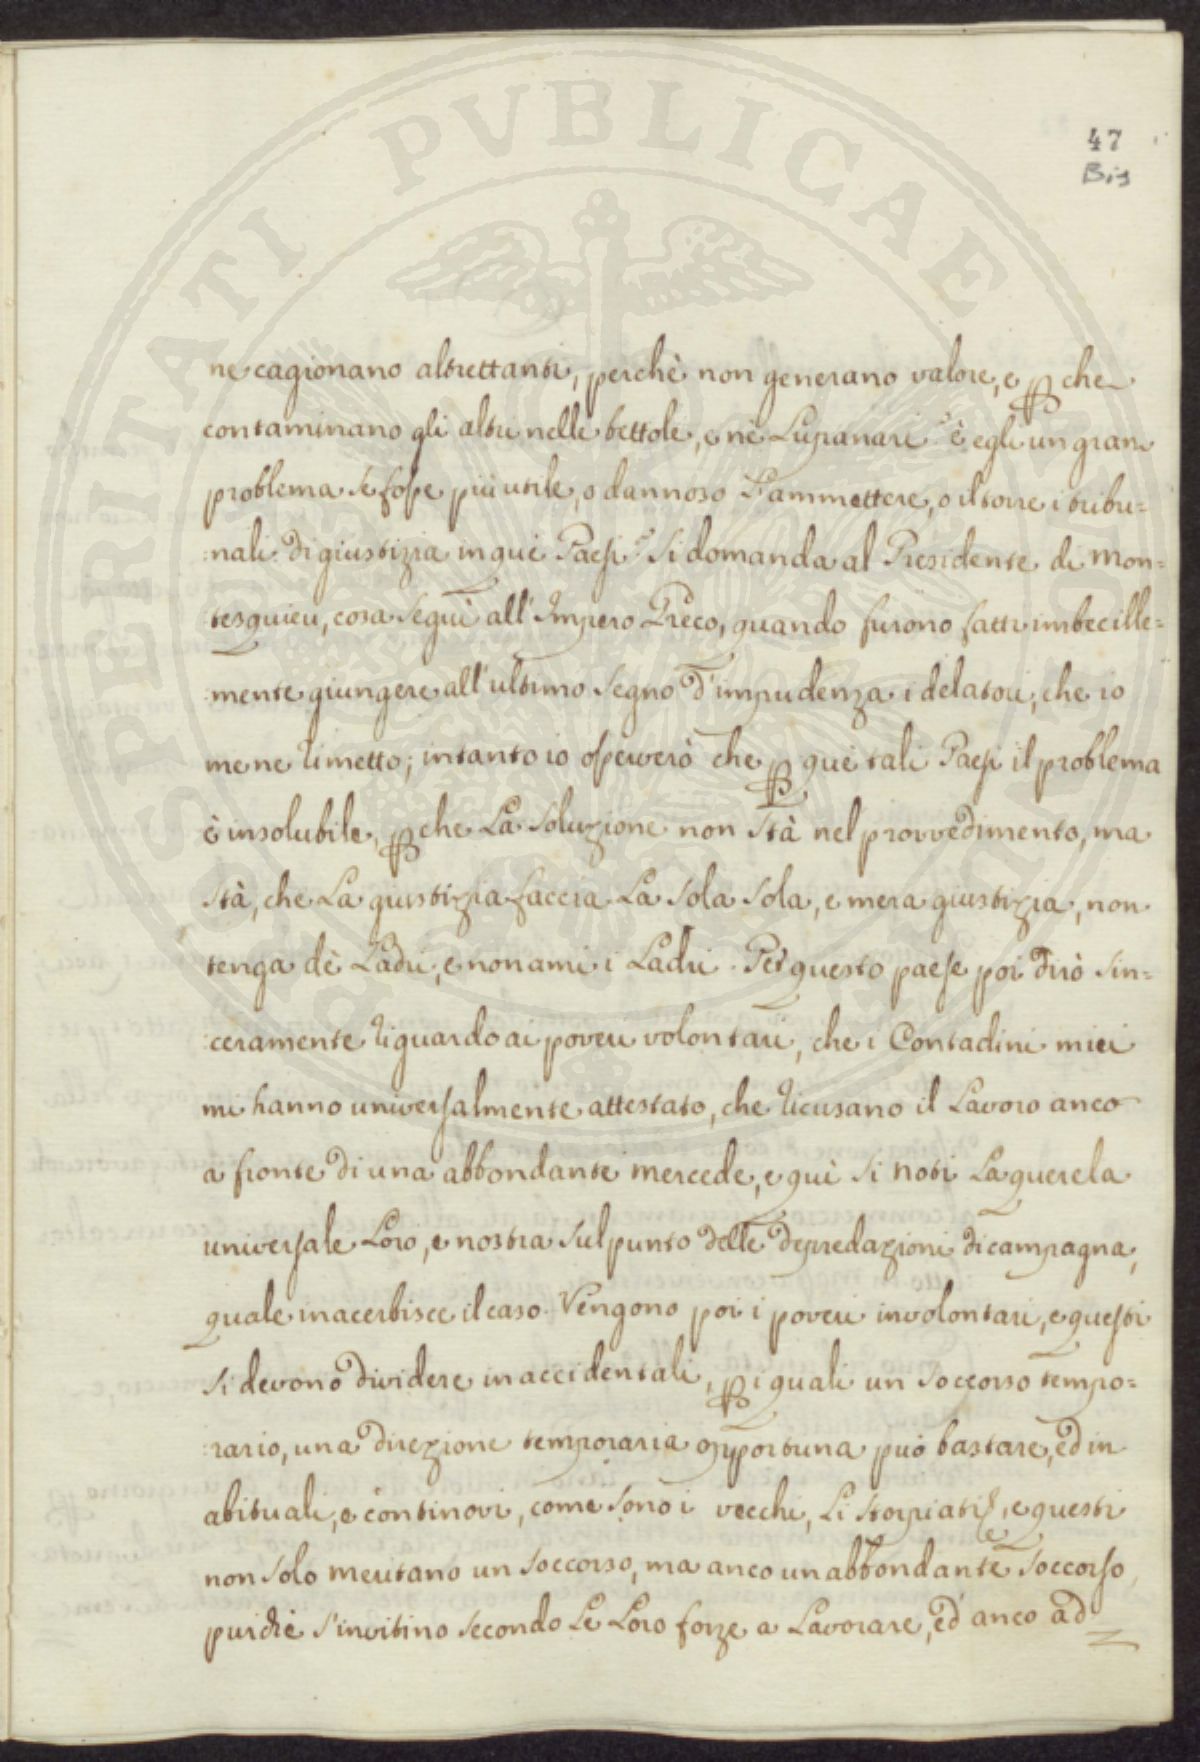 47
Bis
ne cagionano altrettanti, perchè non generano valore, e p che
contaminano gli altri nelle bettole, e nè Lupanari è egli un gran
problema se fosse più utile, o dannoso L'ammettere, o il torre i tribu=
:nali di giustizia in què Paesi Si domanda al Presidente di Mon=
tesquieu, cosa seguì all'Impero Greco, quando furono fatti imbecille=
:mente giungere all'ultimo segno d'impudenza i delatori, che io
me ne rimetto; intanto io osserverò che p què tali Paesi il problema
è insolubile, p che La soluzione non stà nel provvedimento, ma
stà, che La giustizia faccia La sola sola, e mera giustizia, non
tenga dè Ladri, e non ami i Ladri. Per questo paese poi dirò sin=
:ceramente riguardo ai poveri volontari, che i Contadini miei
mi hanno universalmente attestato, che ricusano il Lavoro anco
a fronte di una abbondante mercede, e quì si noti La querela
universale Loro, e nostra sul punto delle depredazioni di campagna,
quale inacerbisce il caso. Vengono poi i poveri involontari, e questi
si devono dividere in accidentali, p i quali un soccorso tempo=
:rario, una direzione temporaria opportuna può bastare, ed in
abituali, e continovi, come sono i vecchi, Li storpiati, e questi
non solo meritano un soccorso, ma anco un abbondante soccorso,
purchè s'invitino secondo Le Loro forze a Lavorare, ed anco ad
PROSPERITATI PVBLICAE